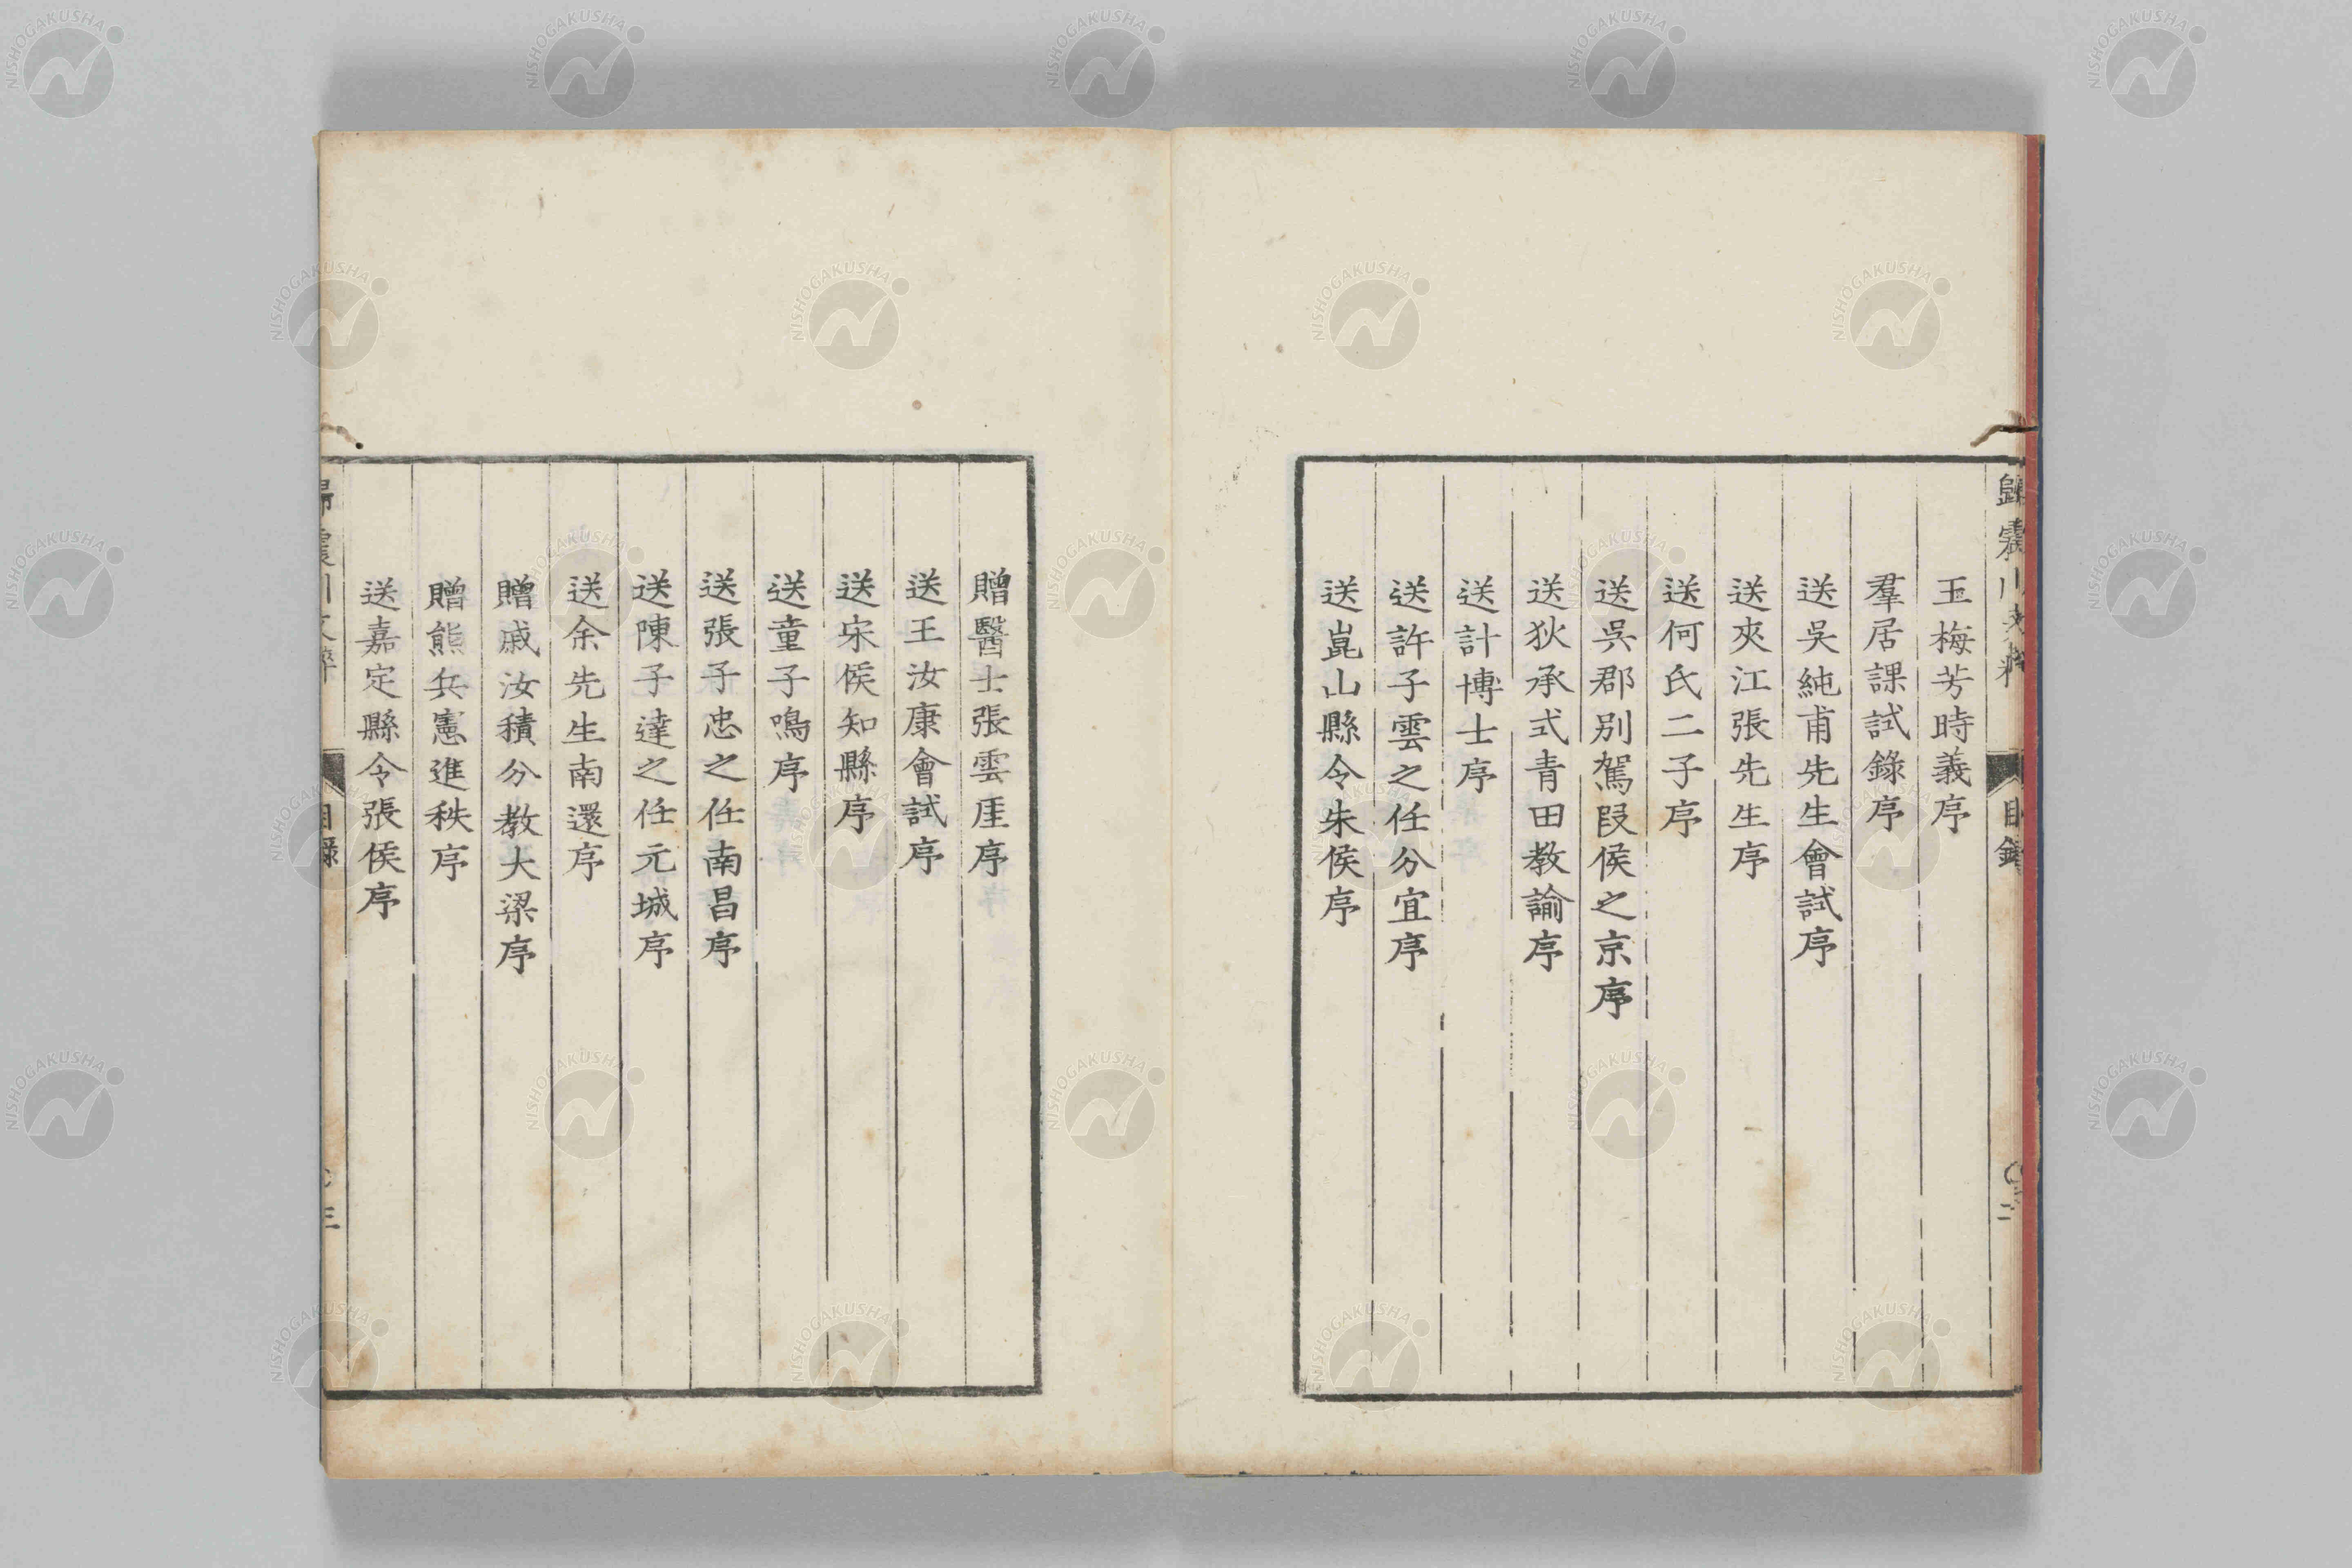 歸震川文粹
目錄
二
玉梅芳時義序
羣居課試錄序
送吳純甫先生會試序
送夾江張先生序
送何氏二子序
送吳郡别駕段侯之京序
送狄承式青田教諭序
送計博士序
送許子雲之任分宜序
送崑山縣令朱侯序
贈醫士張雲厓序
送王汝康會試序
送宋侯知縣序
送童子鳴序
送張子忠之任南昌序
送陳子達之任元城序
送余先生南還序
贈戚汝積分教大梁序
贈熊兵憲進秩序
送嘉定縣令張侯序
歸震川文粹
目錄
三
NISHOGAKUSHA